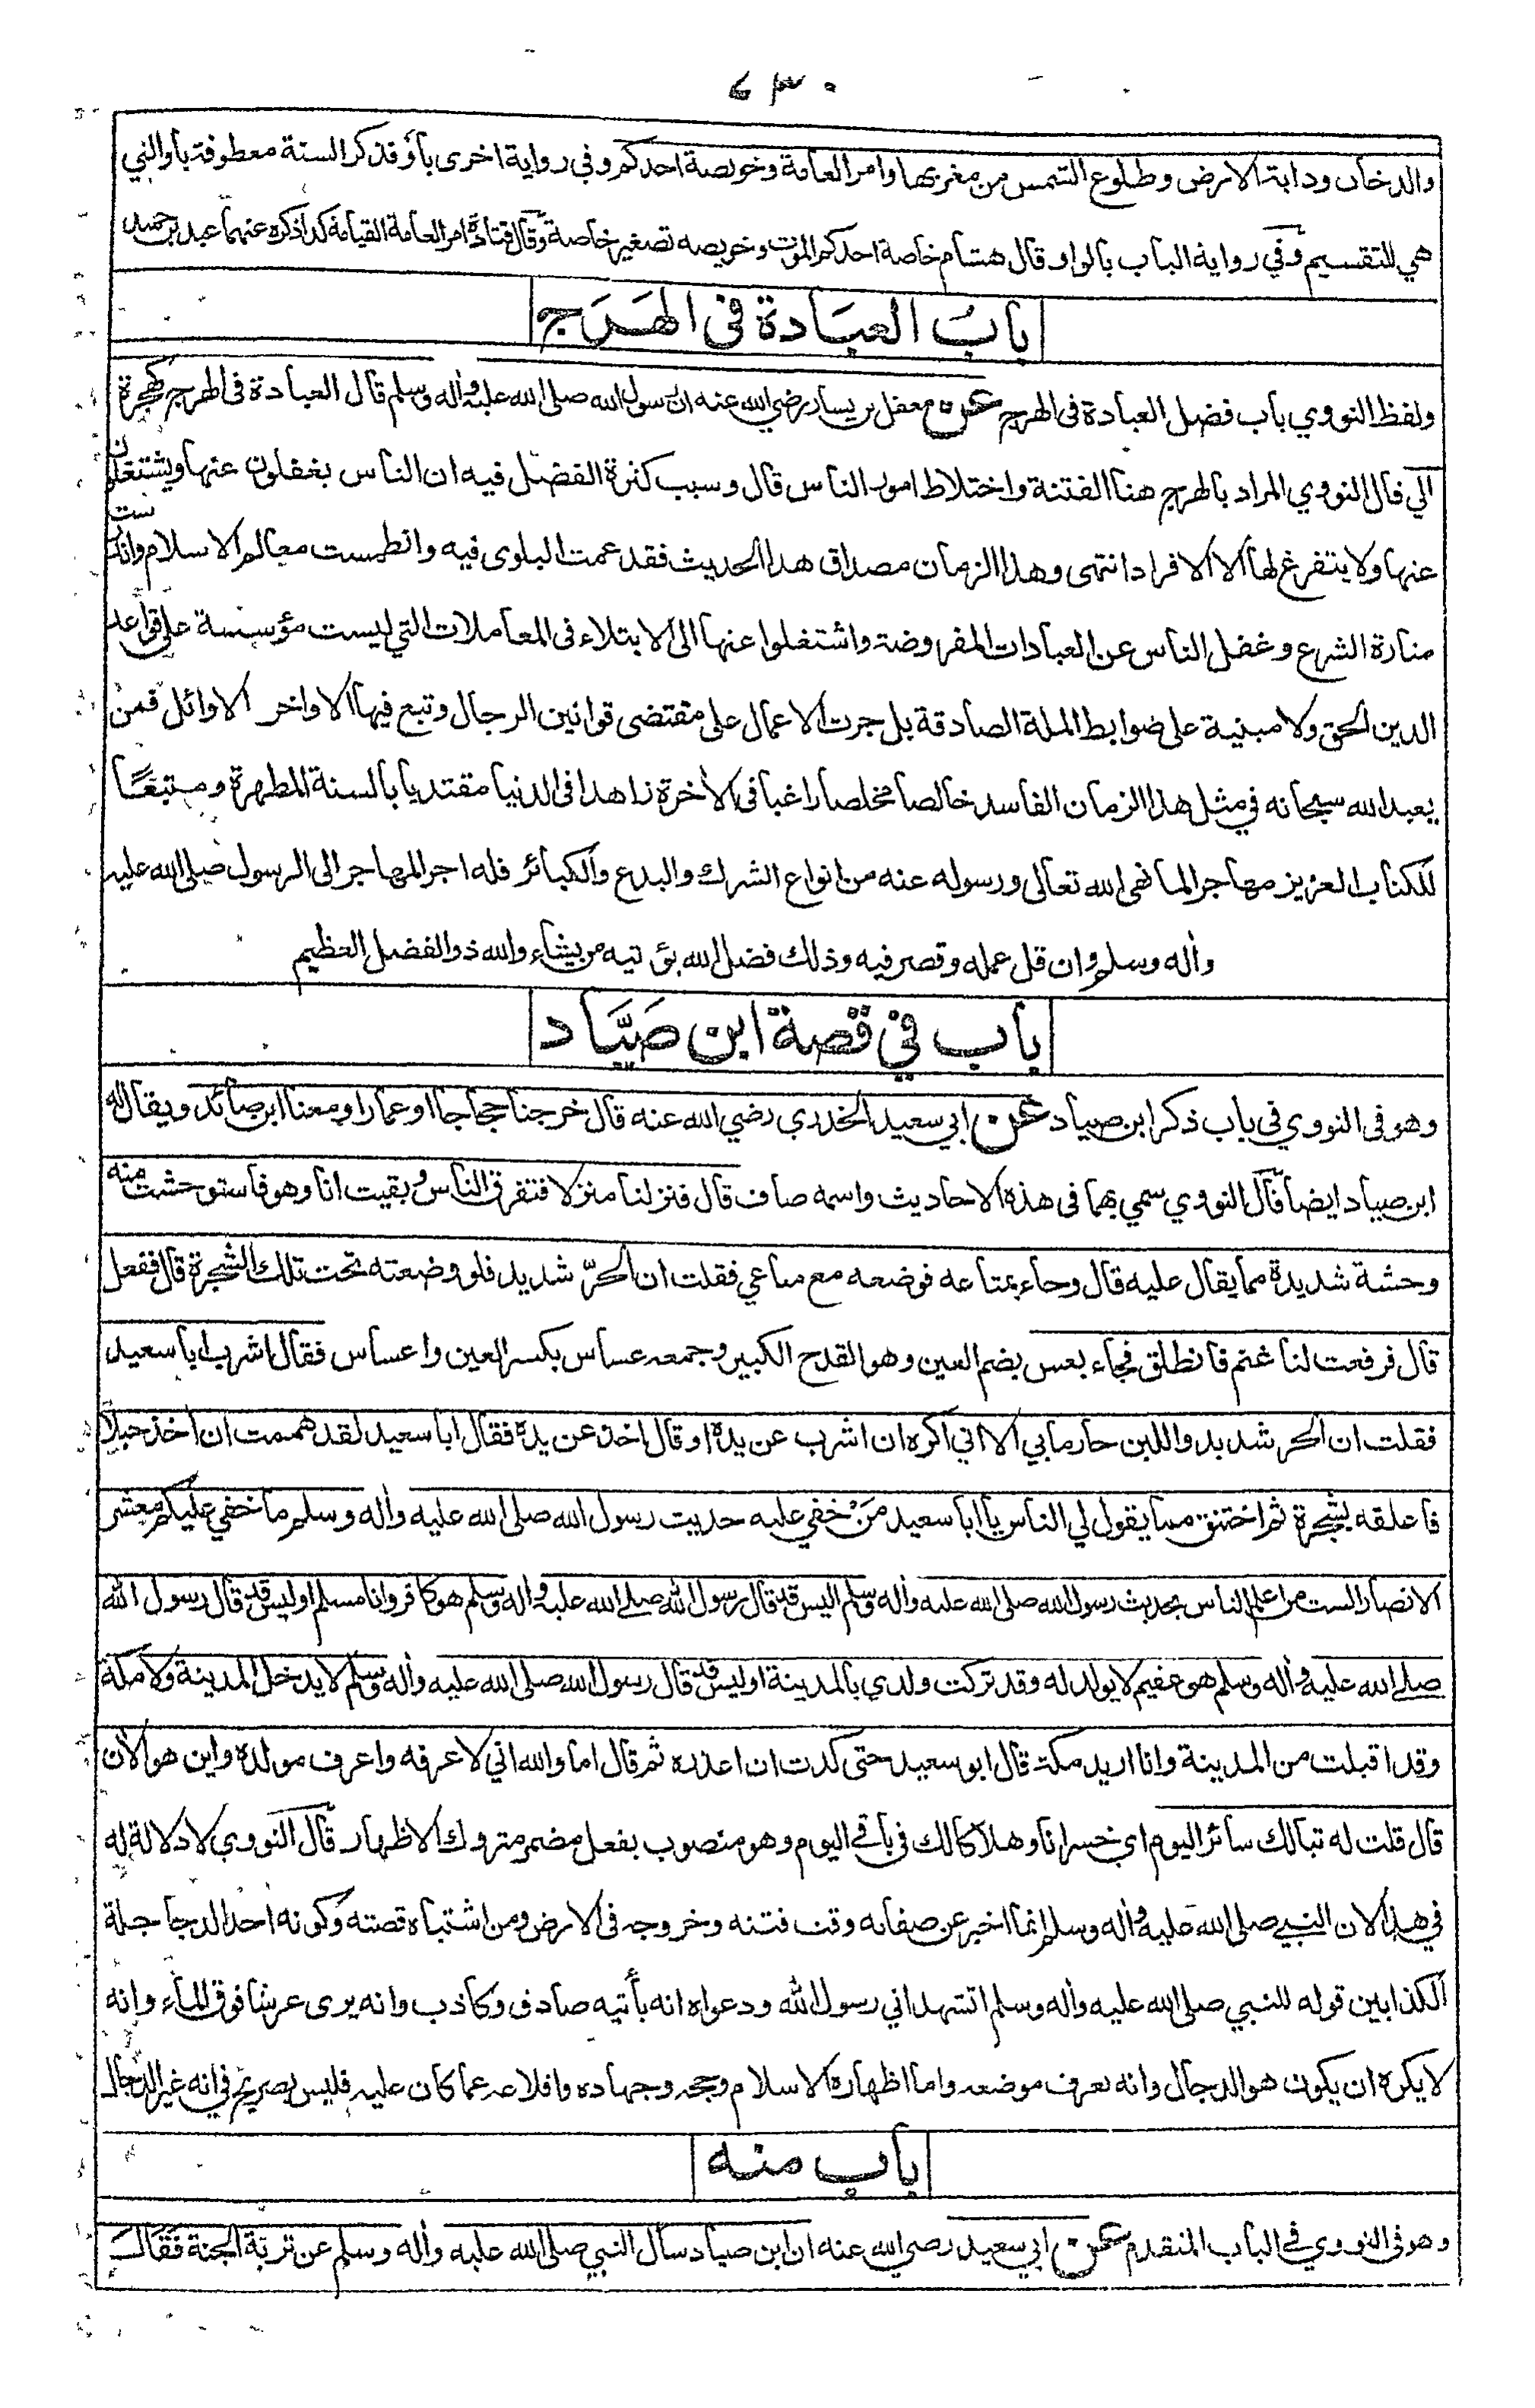 ٦٣٠
والدخان ودابة الارض وطلوع الشمس من مغربها وامر العامة وخويصة احدكم وفي رواية اخرى بأو فذكر الستة معطوفة بأو التي
هي للتقسيم وفي رواية الباب بالواو قال هشام خاصة احدكم الموت وخويصه تصغير خاصة وقال قتادة امر العامة القيامة كذا ذكره عنهما عبد بن حميد
باب العبادة فى الهرج
ولفظ النووي باب فضل العبادة فى الهرج عن معقل بن يسار رضي الله عنه ان رسول الله صلى الله عليه واٰله وسلم قال العبادة فى الهرج كهجرة
الي قال النووي المراد بالهرج هنا الفتنة واختلاط امور الناس قال وسبب كثرة الفضل فيه ان الناس يغفلون عنها ويشتغلون
عنها ولا يتفرغ لها الا الافراد انتهى وهذا الزمان مصداق هذا الحديث فقد عمت البلوى فيه وانطمست معالم الاسلام واندرست
منارة الشرع وغفل الناس عن العبادات المفروضة واشتغلوا عنها الى الابتلاء فى المعاملات التي ليست مؤسسة على قواعد
الدين الحق ولا مبنية على ضوابط الملة الصادقة بل جرت الاعمال على مقتضى قوانين الرجال وتبع فيها الاواخر الاوائل فمن
يعبد الله سبحانه في مثل هذا الزمان الفاسد خالصا مخلصا راغبا فى الاٰخرة زاهدا فى الدنيا مقتديا بالسنة المطهرة ومتبعًا
للكتاب العزيز مهاجر الما نهى الله تعالى ورسوله عنه من انواع الشرك والبدع والكبائر فله اجر المهاجر الى الرسول صلى الله عليه
واٰله وسلم وان قل عمله وقصر فيه وذلك فضل الله يؤتيه من يشاء والله ذو الفضل العظيم
باب في قصة ابن صيّاد
وهو فى النووي فى باب ذكر ابن صياد عن ابي سعيد الخدري رضي الله عنه قال خرجنا حجاجا او عمارا ومعنا ابن صائد ويقال له
ابن صياد ايضا قال النووي سمي بهما فى هذه الاحاديث واسمه صاف قال فنزلنا منزلا فتفرق الناس وبقيت انا وهو فاستوحشت منه
وحشة شديدة مما يقال عليه قال وجاء بمتاعه فوضعه مع متاعي فقلت ان الحرّ شديد فلو وضعته تحت تلك الشجرة قال ففعل
قال فرفعت لنا غنم فانطلق فجاء بعس بضم العين وهو القدح الكبير وجمعه عساس بكسر العين واعساس فقال اشرب ابا سعيد
فقلت ان الحر شديد واللبن حار ما بي الا اني اكره ان اشرب عن يده او قال اخذ عن يده فقال ابا سعيد لقد هممت ان اٰخذ حبلا
فاعلقه بشجرة ثم اختنق مما يقول لي الناس يا ابا سعيد مَنْ خفي عليه حديث رسول الله صلى الله عليه واٰله وسلم ما خفي عليكم معشر
الانصار الست من اعلم الناس بحديث رسول الله صلى الله عليه واٰله وسلم اليس قد قال رسول الله صلى الله عليه واٰله وسلم هو كافر وانا مسلم اوليس قد قال رسول الله
صلى الله عليه واٰله وسلم هو عقيم لا يولد له وقد تركت ولدي بالمدينة اوليس قد قال رسول الله صلى الله عليه واٰله وسلم لا يدخل المدينة ولا مكة
وقد اقبلت من المدينة وانا اريد مكة قال ابو سعيد حتى كدت ان اعذره ثم قال اما والله اني لاعرفه واعرف مولده واين هو الاٰن
قال قلت له تبا لك سائر اليوم اي خسرانا وهلاكا لك فى باقى اليوم وهو منصوب بفعل مضمر متروك الاظهار قال النووي لا دلالة له
في هذا لان النبي صلى الله عليه واٰله وسلم انما اخبر عن صفاته وقت فتنه وخروجه فى الارض ومن اشتباه قصته وكونه احد الدجاجلة
الكذابين قوله للنبي صلى الله عليه واٰله وسلم اتشهد اني رسول الله ودعواه انه يأتيه صادق وكاذب وانه يرى عرشا فوق الماء وانه
لا يكره ان يكون هو الدجال وانه يعرف موضعه واما اظهاره الاسلام وحجه وجهاده واقلاعه عما كان عليه فليس بصريح في انه غير الدجال
باب منه
وهو فى النووي في الباب المتقدم عن ابي سعيد رضي الله عنه ان ابن صياد سأل النبي صلى الله عليه واٰله وسلم عن تربة الجنة فقال